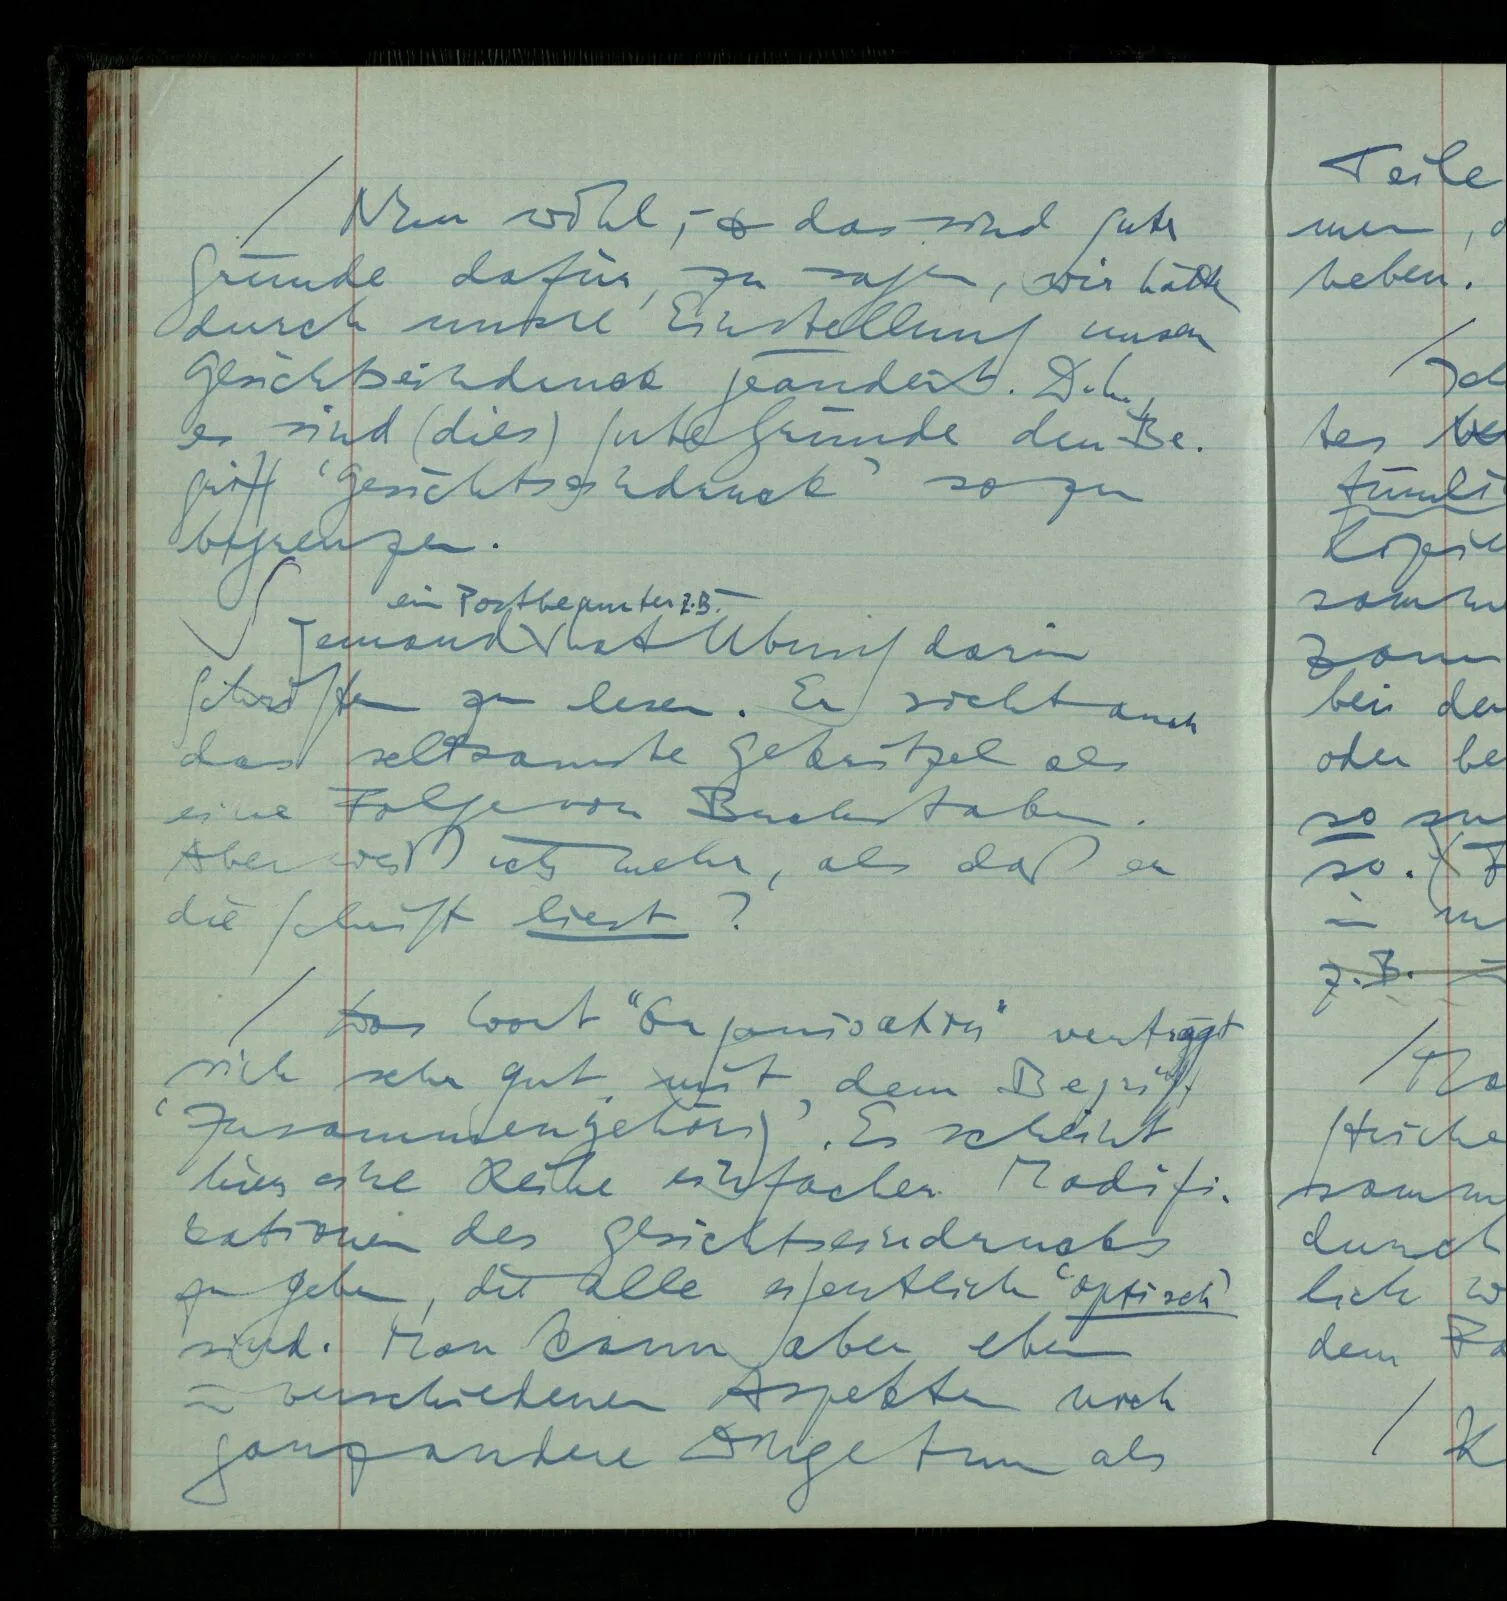 / Nun wohl, – das sind gute
Gründe dafür, zu sagen, wir hätten
durch unsre Einstellung unsern
Gesichtseindruck geändert. D.h.,
es sind (dies) gute Gründe den Be-
griff ‘Gesichtseindruck’ so zu
begrenzen.
ein Postbeamter z.B.
Jemand hat Übung darin
Schriften zu lesen. Er sieht auch
das seltsamste Gekritzel als
eine Folge von Buchstaben.
Aber weiß ich mehr, als daß er
die Schrift liest?
/ Das Wort “Organisation” verträgt
sich sehr gut mit dem Begriff
‘Zusammengehörig’. Es scheint
hier eine Reihe einfacher Modifi-
kationen des Gesichtseindrucks
zu geben, die alle eigentlich ‘optisch’
sind. Man kann aber eben
in verschiedenen Aspekten noch
ganz andere Dinge tun als
Teile
men,
heben.
/ Ich
tes
tümli
Kopie
samm
Zam
bei der
oder be
so zu
so. (
in
z.B.
/
Striche
samm
durch
lich w
dem
/ K